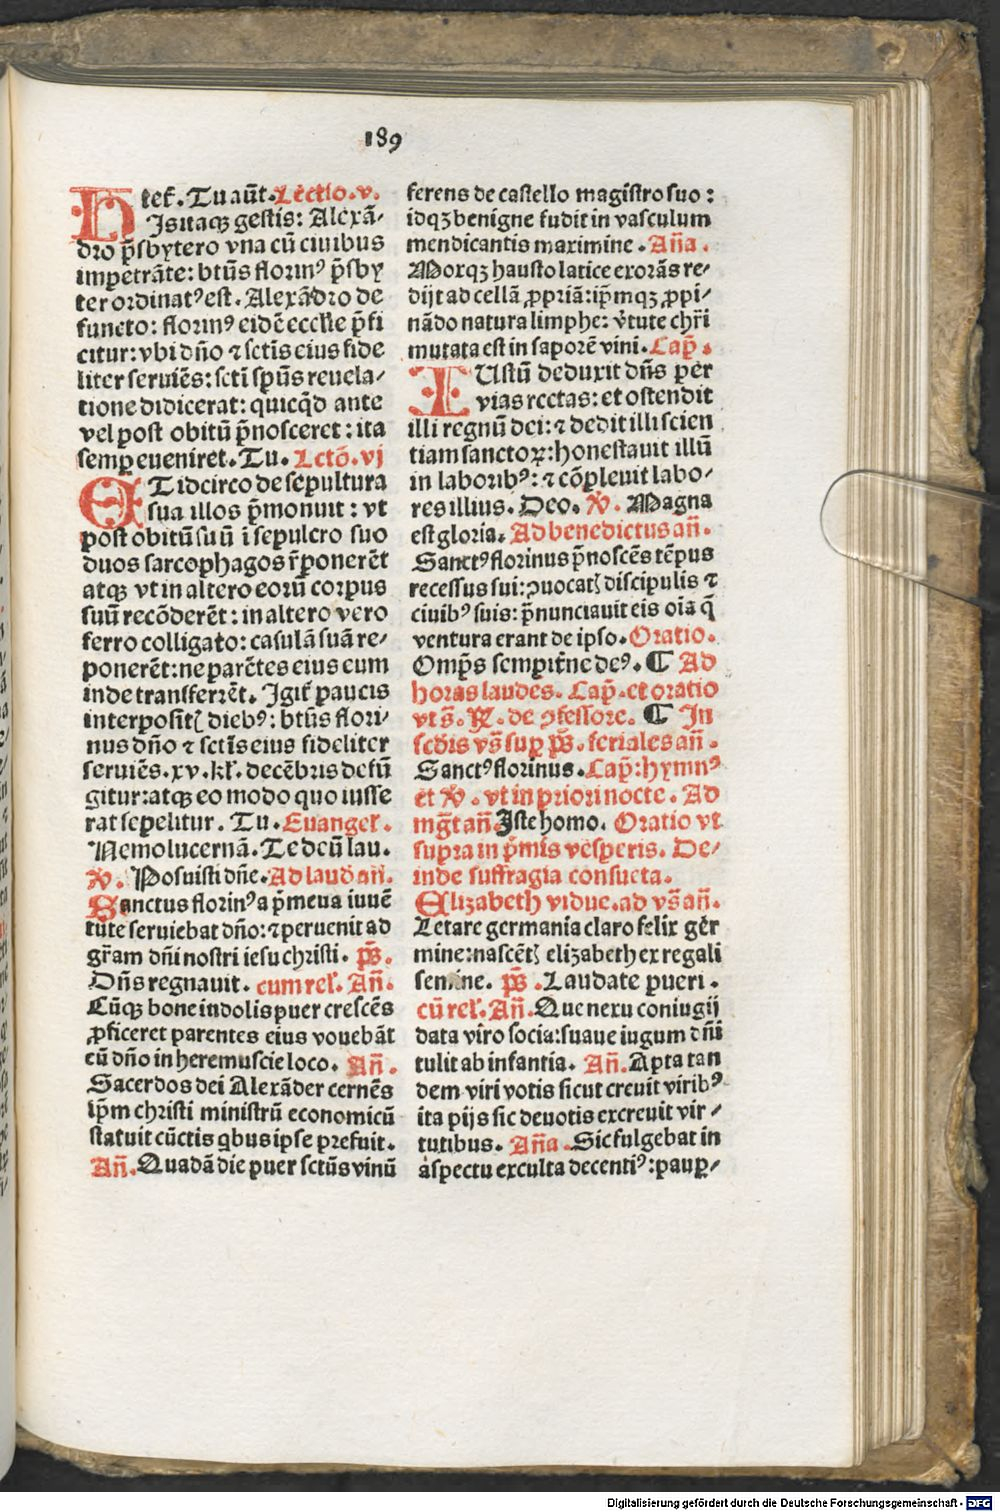 189
tet. Tu aūt. Lectio. v.
HIs itaqꝫ gestis: Alexā⸗
dro p̄sbytero vna cū ciuibus
impetrāte: btūs florinꝰ p̄sby
ter ordinatꝰ est. Alexādro de
functo: florinꝰ eidē ecclīe p̄fi
citur: vbi dn̄o ⁊ sctīs eius fide
liter seruiēs: sctī sp̄us reuela⸗
tione didicerat: quicq̄d ante
vel post obitū p̄nosceret: ita
semꝑ eueniret. Tu. Lctō. vj
ET idcirco de sepultura
sua illos p̄monuit: vt
post obitū suū ī sepulcro suo
duos sarcophagos r̄ponerēt
atqꝫ vt in altero eorū corpus
suū recōderēt: in altero vero
ferro colligato: casulā suā re⸗
ponerēt: ne parētes eius eum
inde transferrēt. Igit̄ paucis
interpositꝭ diebꝰ: btūs flori⸗
nus dn̄o ⁊ sctīs eius fideliter
seruiēs. xv. kl̄. decēbris defū
gitur: atqꝫ eo modo quo iusse
rat sepelitur. Tu. Euangel̄.
Nemo lucernā. Te deū lau.
℣. Posuisti dn̄e. Ad laud̄ an̄.
Sanctus florinꝰ a p̄meua iuuē
tute seruiebat dn̄o: ⁊ peruenit ad
gr̄am dn̄i nostri iesu christi. p̄s.
Dn̄s regnauit. cum rel̄. An̄.
Cūqꝫ bone indolis puer crescēs
ꝓficeret parentes eius vouebāt
eū dn̄o in heremuscie loco. An̄.
Sacerdos dei Alexāder cernēs
ip̄m christi ministrū economicū
statuit cūctis qbus ipse prefuit.
An̄. Quadā die puer sctūs vinū
ferens de castello magistro suo:
idqꝫ benigne fudit in vasculum
mendicantis maximine. An̄a.
Morqꝫ hausto latice exorās re⸗
dijt ad cellā ꝓpriā: ip̄mqꝫ ꝓpi⸗
nādo natura limphe: v̄tute chr̄i
mutata est in saporē vini. Cap̄.
IUstū deduxit dn̄s per
vias rectas: et ostendit
illi regnū dei: ⁊ dedit illi scien
tiam sanctoꝝ: honestauit illū
in laboribꝰ: ⁊ cōpleuit labo⸗
res illius. Deo. ℣. Magna
est gloria. Ad benedictus an̄.
Sanctꝰ florinus p̄noscēs tēpus
recessus sui: ꝯuocatꝭ discipulis ⁊
ciuibꝰ suis: p̄nunciauit eis oīa q̄
ventura erant de ipso. Oratio.
Omp̄s sempit̄ne deꝰ. ¶ Ad
horas laudes. Cap̄. et oratio
vt s̄. ℟. de ꝯfessore. ¶ In
scd̄is vs̄ suꝑ p̄s. feriales an̄.
Sanctꝰ florinus. Cap̄: hymnꝰ
et ℣. vt in priori nocte. Ad
mḡt an̄. Iste homo. Oratio vt
supra in p̄mis vesperis. De⸗
inde suffragia consueta.
Elizabeth vidue. ad vs̄ an̄.
Letare germania claro felix ger
mine: nascētꝭ elizabeth ex regali
semine. p̄s. Laudate pueri.
cū rel̄. An̄. Que nexu coniugij
data viro socia: suaue iugum dn̄i
tulit ab infantia. An̄. Apta tan
dem viri votis sicut creuit viribꝰ
ita pijs sic deuotis excreuit vir⸗
tutibus. An̄a. Sic fulgebat in
aspectu exculta decentiꝰ: pauꝑ⸗
Digitalisierung gefördert durch die Deutsche Forschungsgemeinschaft - DFG